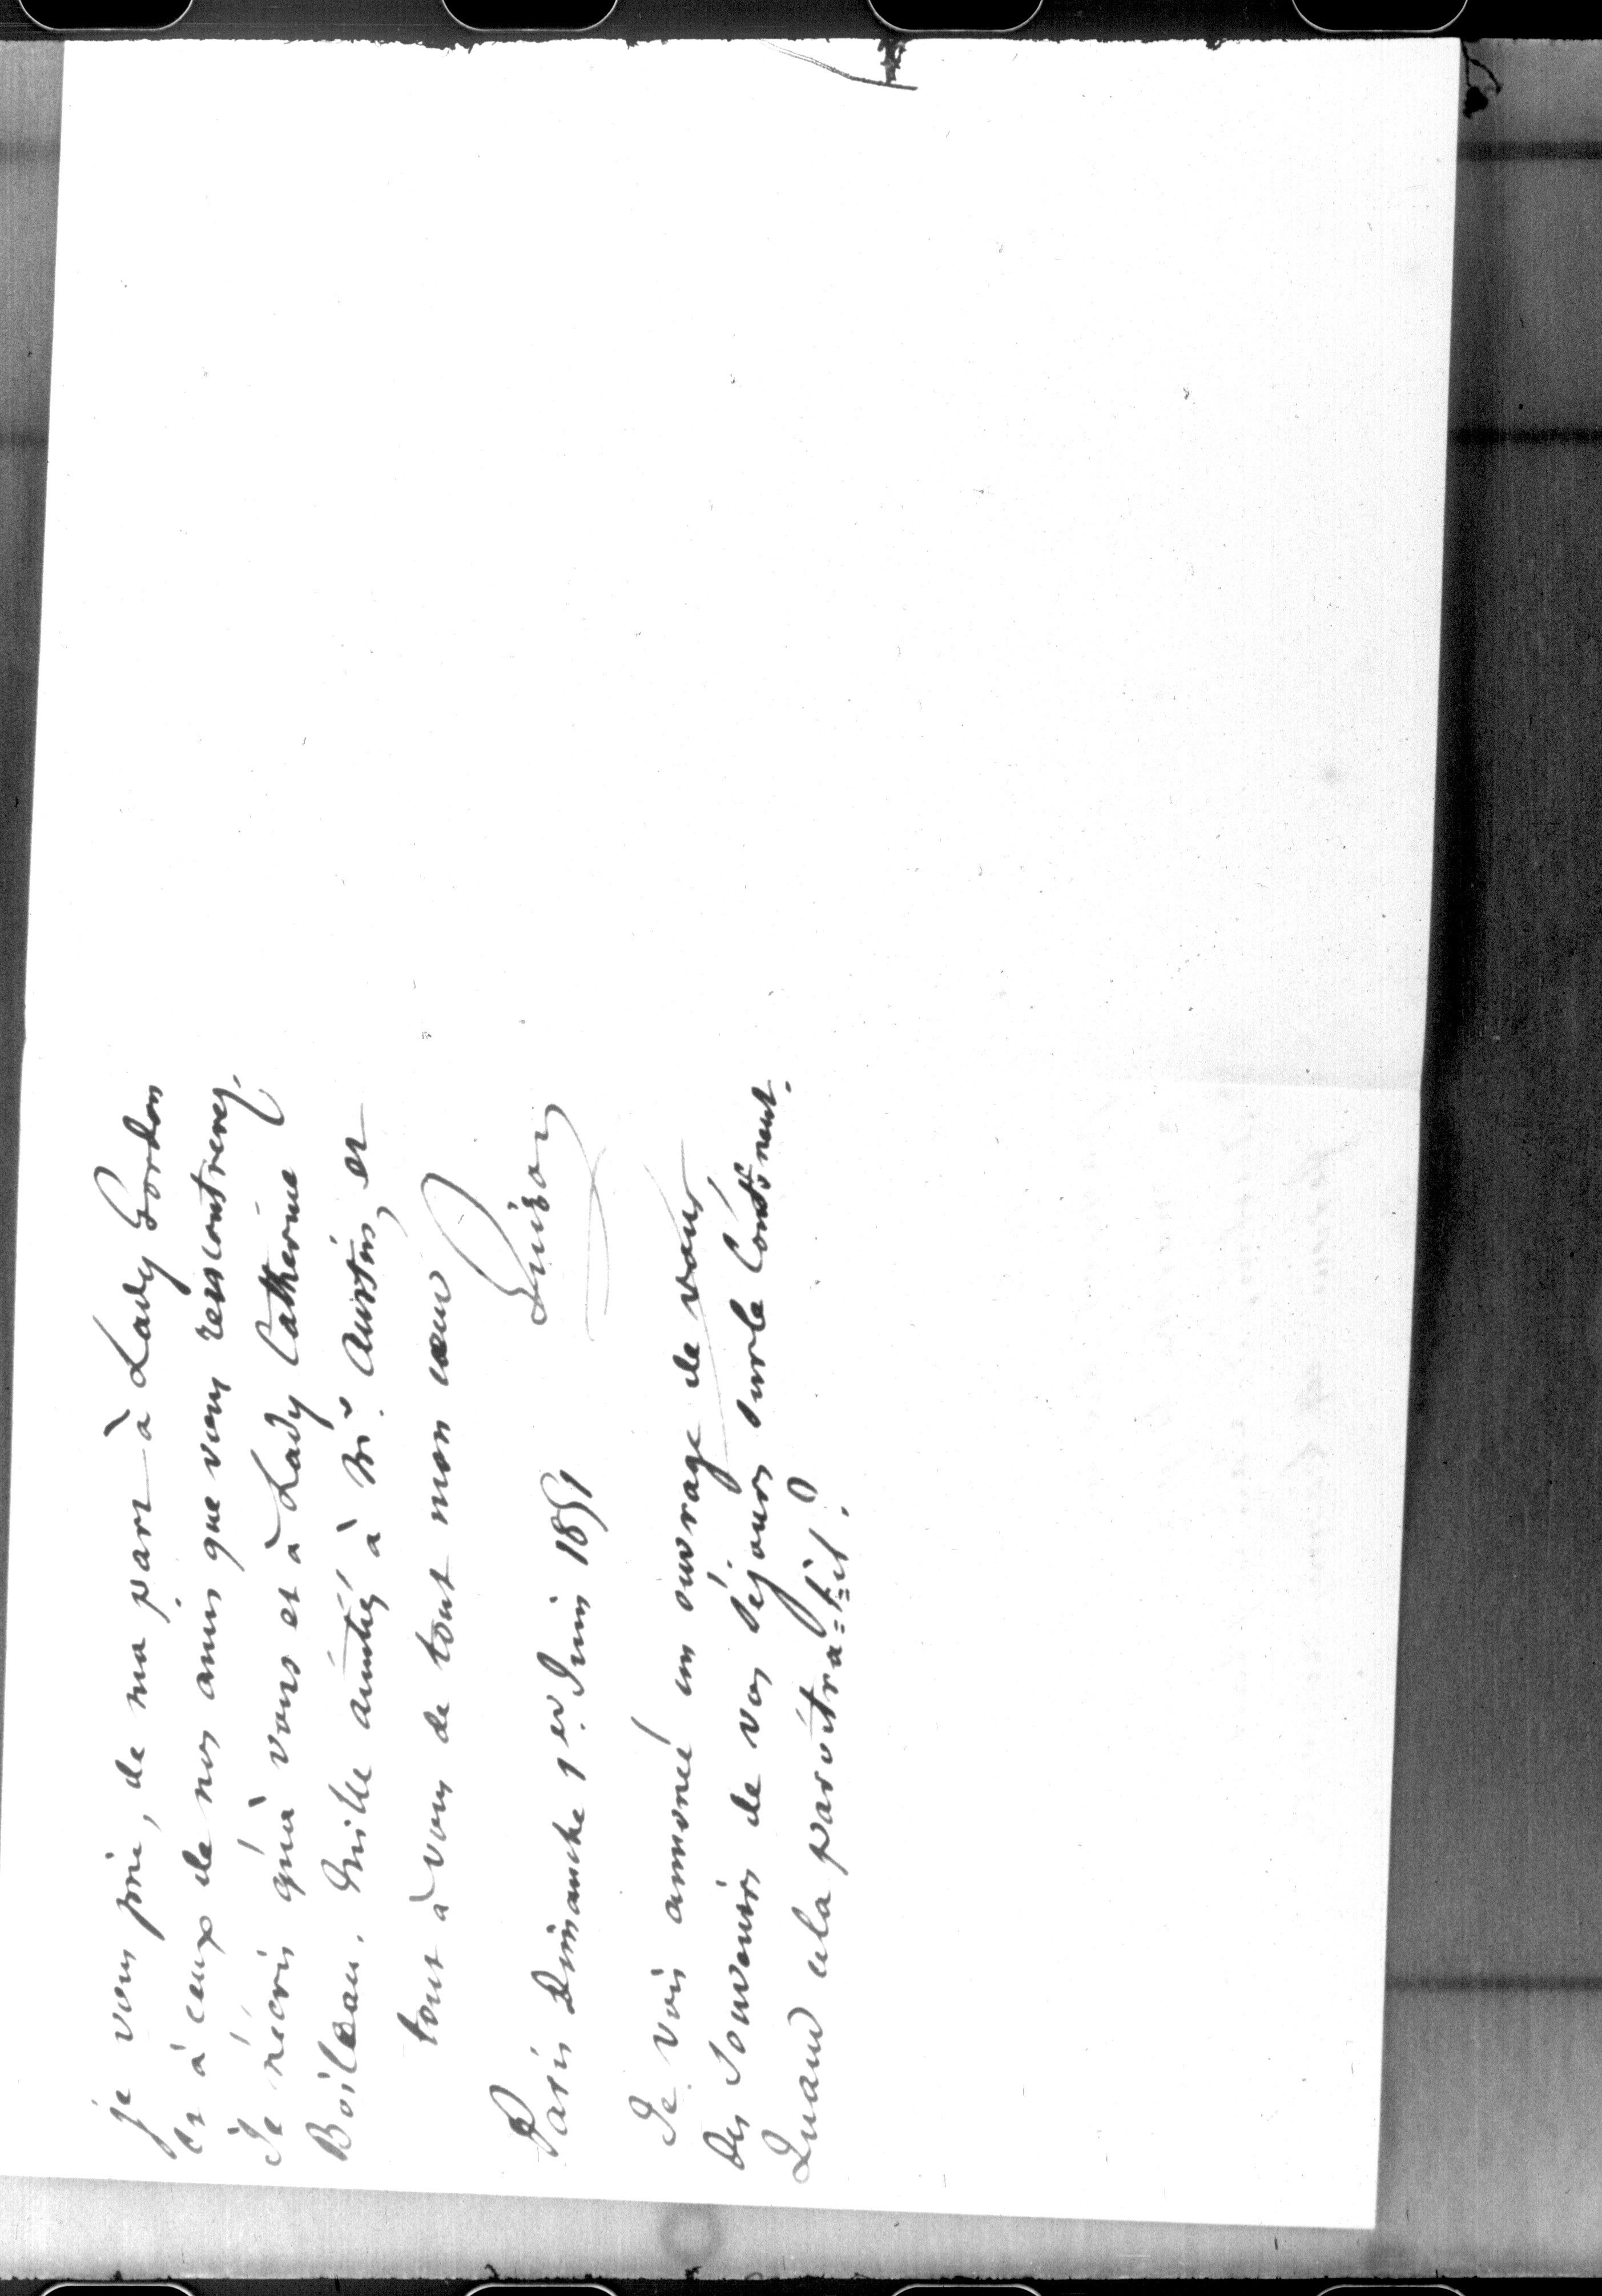 je vous prie, de ma part à Lady Gordon
et à ceux de nos amis que vous rencontrerez.
Je n'écris qu'à vous et à Lady Catherine
Boileau. Mille amitiés à Mr. Austin, et
tout à vous de tout mon cœur
Guizot
Paris Dimanche 1er. Juin 1851
Je vois annoncé un ouvrage de vous,
des souvenirs de vos séjours sur le Continent.
Quand cela paroîtra-t-il?